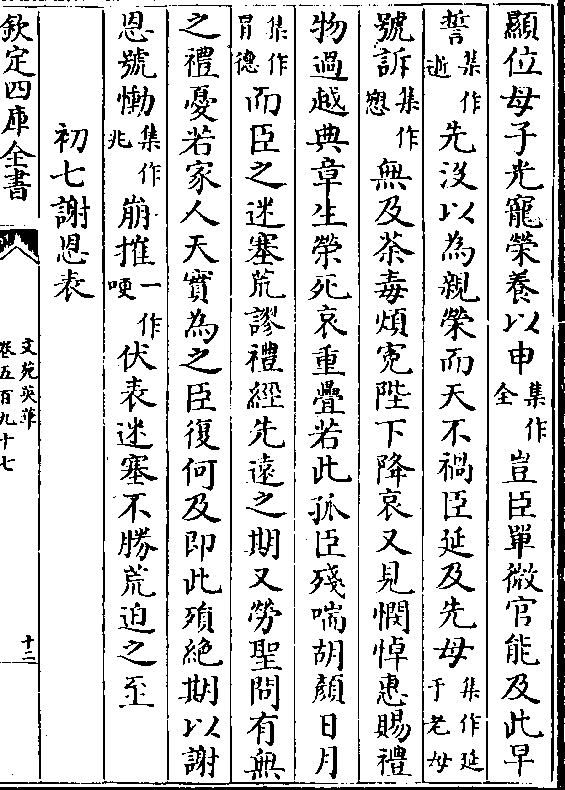 顯位母子光寵榮養以申集作全豈臣單微官能及此早
誓集作逝先没以為親榮而天不禍臣延及先母集作延于老母
號訴集作愬無及荼毒煩寃陛下降哀又見憫悼惠賜禮
物過越典章生榮死哀重疊若此孤臣殘喘胡顏日月
集作冐德而臣之迷塞荒謬禮經先遠之期又勞聖問有無
之禮憂若家人天實為之臣復何及即此殞絶期以謝
恩號慟集作兆崩摧一作哽伏表迷塞不勝荒迫之至
初七謝恩表
欽定四庫全書
文苑英華
卷五百九十七
十二